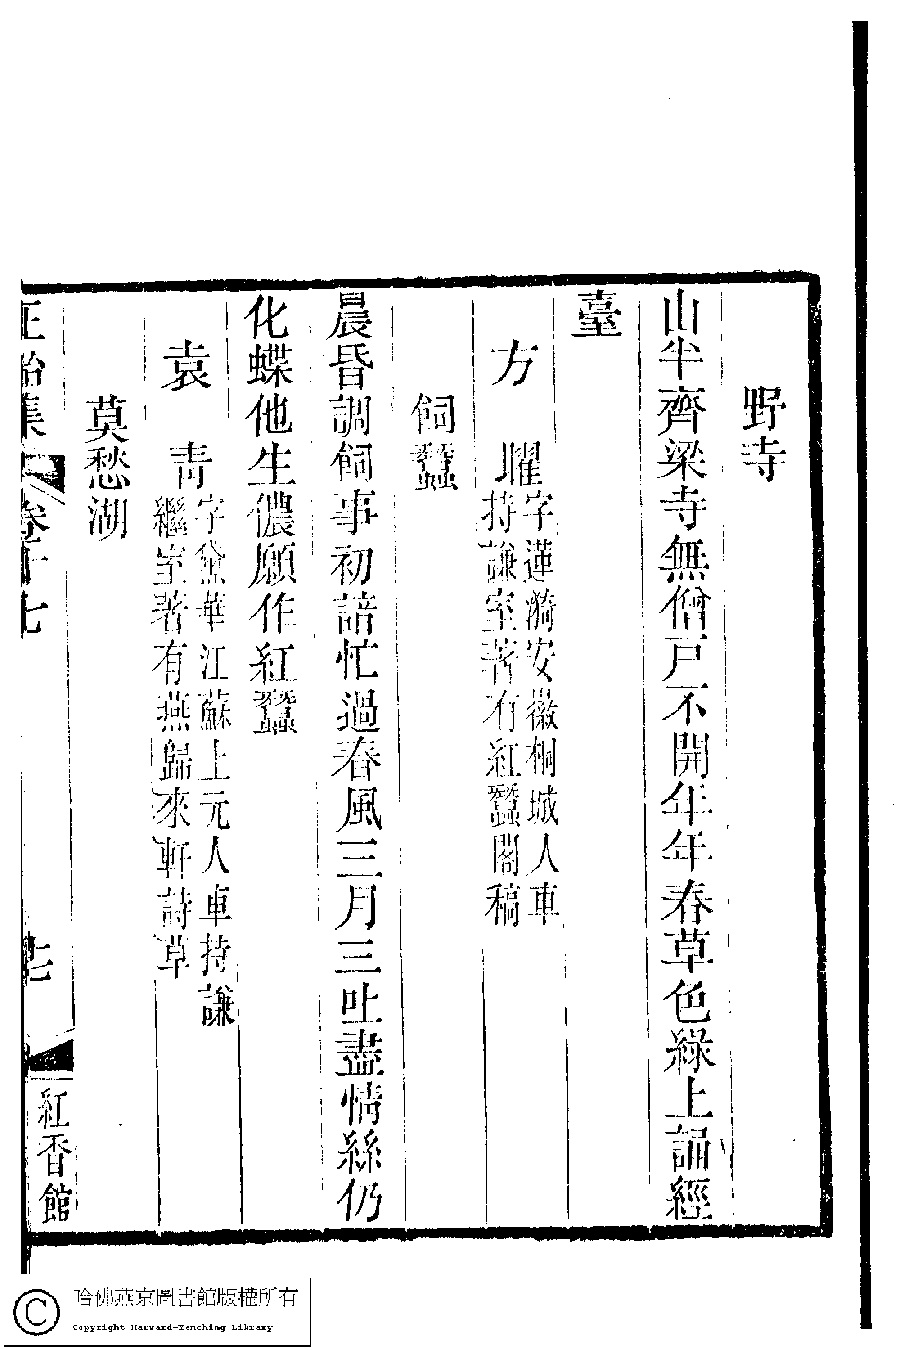 野寺
山半齊梁寺無僧戶不開年年春草色綠上誦經
臺
方　曜字蓮漪安徽桐城人車
持謙室著有紅蠶閣稿
飼蠶
晨昏調飼事初諳忙過春風三月三吐盡情絲仍
化蝶他生儂願作紅蠶
袁　青字黛華江蘇上元人車持謙
繼室著有燕歸來軒詩草
莫愁湖
正始集　卷十七　紅香館
哈佛燕京圖書館版權所有
Copyright Harvard-Yenching Library